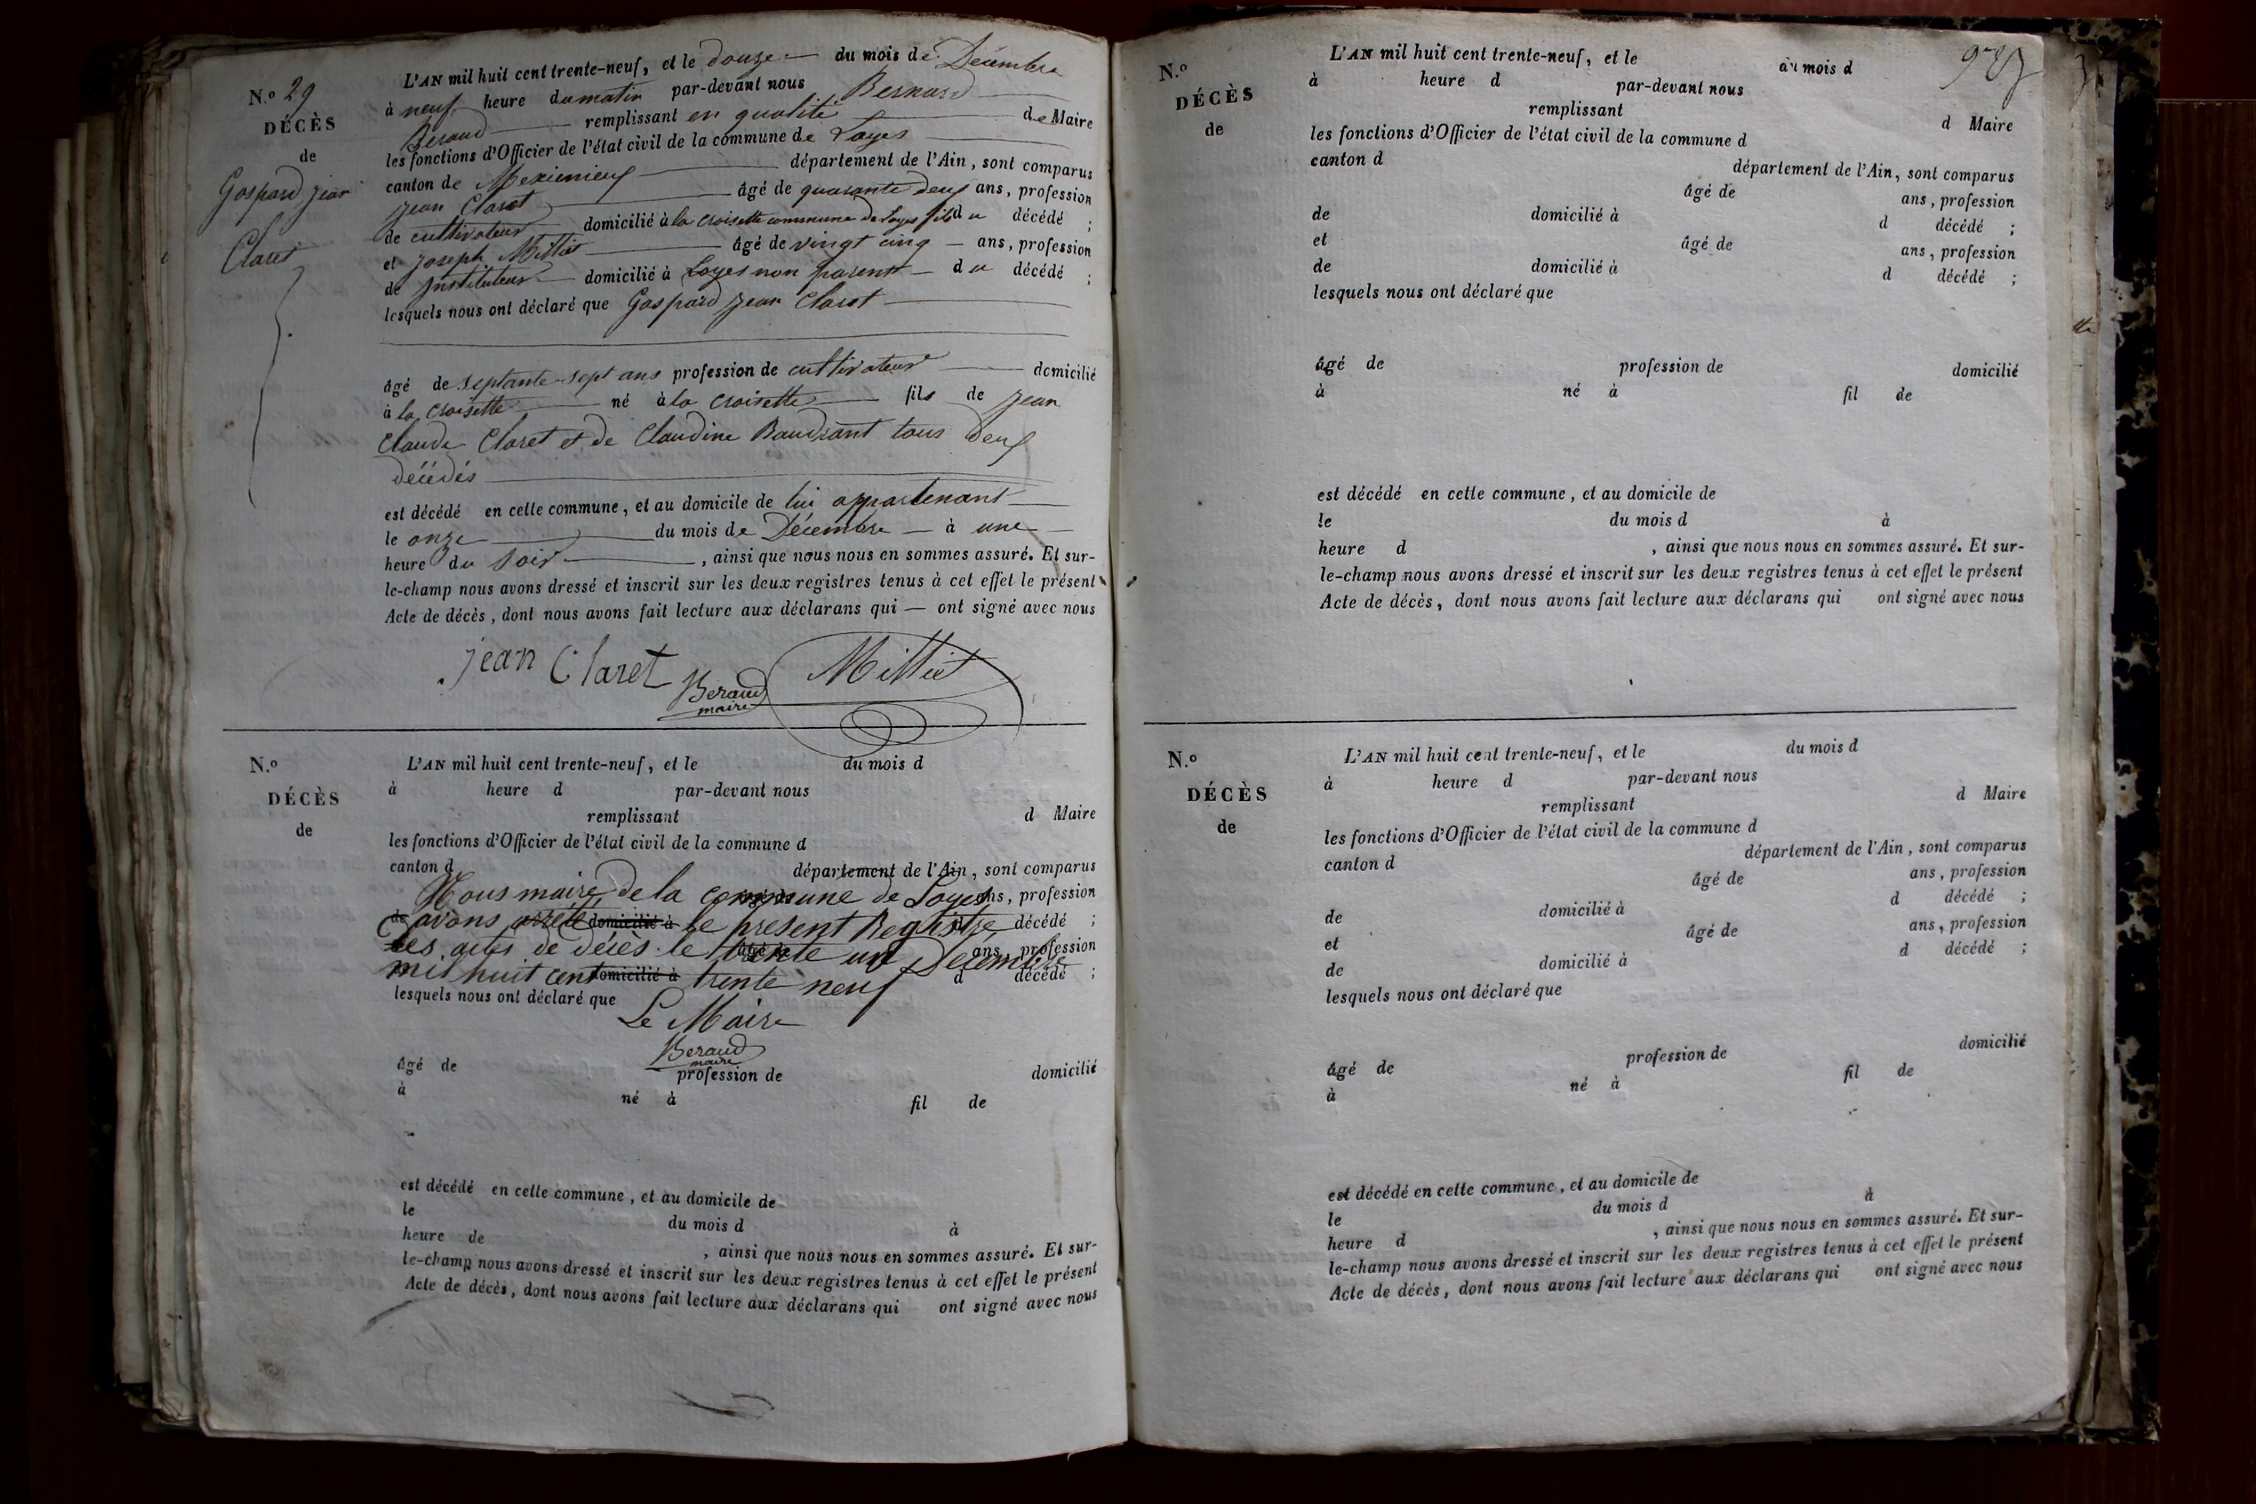 N.º 29
DÉCÈS
de
Gaspard jean
Claret
L'AN mil huit cent trente-neuf, et le douze du mois de Décembre
à neuf heure du matin par-devant nous Bernard
Beraud remplissant en qualité de Maire
les fonctions d'Officier de l'état civil de la commune de Loyes
canton de Meximieux département de l'Ain, sont comparus
jean Claret âgé de quarante deux ans, profession
de cultivateur domicilié à la croisette commune de Loyes fils du décédé ;
et joseph Milliet âgé de vingt cinq ans, profession
de instituteur domicilié à Loyes non parent du décédé ;
lesquels nous ont déclaré que Gaspard jean Claret
âgé de septante-sept ans profession de cultivateur domicilié
à la croisette né à la croisette fils de jean
Claude Claret et de Claudine Baudrant tous deux
décédés
est décédé en cette commune, et au domicile de lui appartenant
le onze du mois de Décembre à une
heure du soir, ainsi que nous nous en sommes assuré. Et sur-
le-champ nous avons dressé et inscrit sur les deux registres tenus à cet effet le présent
Acte de décès, dont nous avons fait lecture aux déclarans qui — ont signé avec nous
jean Claret Beraud Milliet
maire
N.º
DÉCÈS
de
L'AN mil huit cent trente-neuf, et le du mois d
à heure d par-devant nous
remplissant d Maire
les fonctions d'Officier de l'état civil de la commune d
canton d département de l'Ain, sont comparus
Nous maire de la commune de Loyes ans, profession
de avons arrêté domicilié à le present Registre d décédé ;
des actes de décès le trente un Decembre ans, profession
mil huit cent domicilié à trente neuf d décédé ;
lesquels nous ont déclaré que
Le Maire
Beraud
maire
âgé de profession de domicilié
à né à fil de
est décédé en cette commune, et au domicile de
le du mois d à
heure de , ainsi que nous nous en sommes assuré. Et sur-
le-champ nous avons dressé et inscrit sur les deux registres tenus à cet effet le présent
Acte de décès, dont nous avons fait lecture aux déclarans qui ont signé avec nous
N.º
DÉCÈS
de
L'AN mil huit cent trente-neuf, et le du mois d
à heure d par-devant nous
remplissant d Maire
les fonctions d'Officier de l'état civil de la commune d
canton d département de l'Ain, sont comparus
âgé de ans, profession
de domicilié à d décédé ;
et âgé de ans, profession
de domicilié à d décédé ;
lesquels nous ont déclaré que
âgé de profession de domicilié
à né à fil de
est décédé en cette commune, et au domicile de
le du mois d à
heure d , ainsi que nous nous en sommes assuré. Et sur-
le-champ nous avons dressé et inscrit sur les deux registres tenus à cet effet le présent
Acte de décès, dont nous avons fait lecture aux déclarans qui ont signé avec nous
N.º
DÉCÈS
de
L'AN mil huit cent trente-neuf, et le du mois d
à heure d par-devant nous
remplissant d Maire
les fonctions d'Officier de l'état civil de la commune d
canton d département de l'Ain, sont comparus
âgé de ans, profession
de domicilié à d décédé ;
et âgé de ans, profession
de domicilié à d décédé ;
lesquels nous ont déclaré que
âgé de profession de domicilié
à né à fil de
est décédé en cette commune, et au domicile de
le du mois d à
heure d , ainsi que nous nous en sommes assuré. Et sur-
le-champ nous avons dressé et inscrit sur les deux registres tenus à cet effet le présent
Acte de décès, dont nous avons fait lecture aux déclarans qui ont signé avec nous